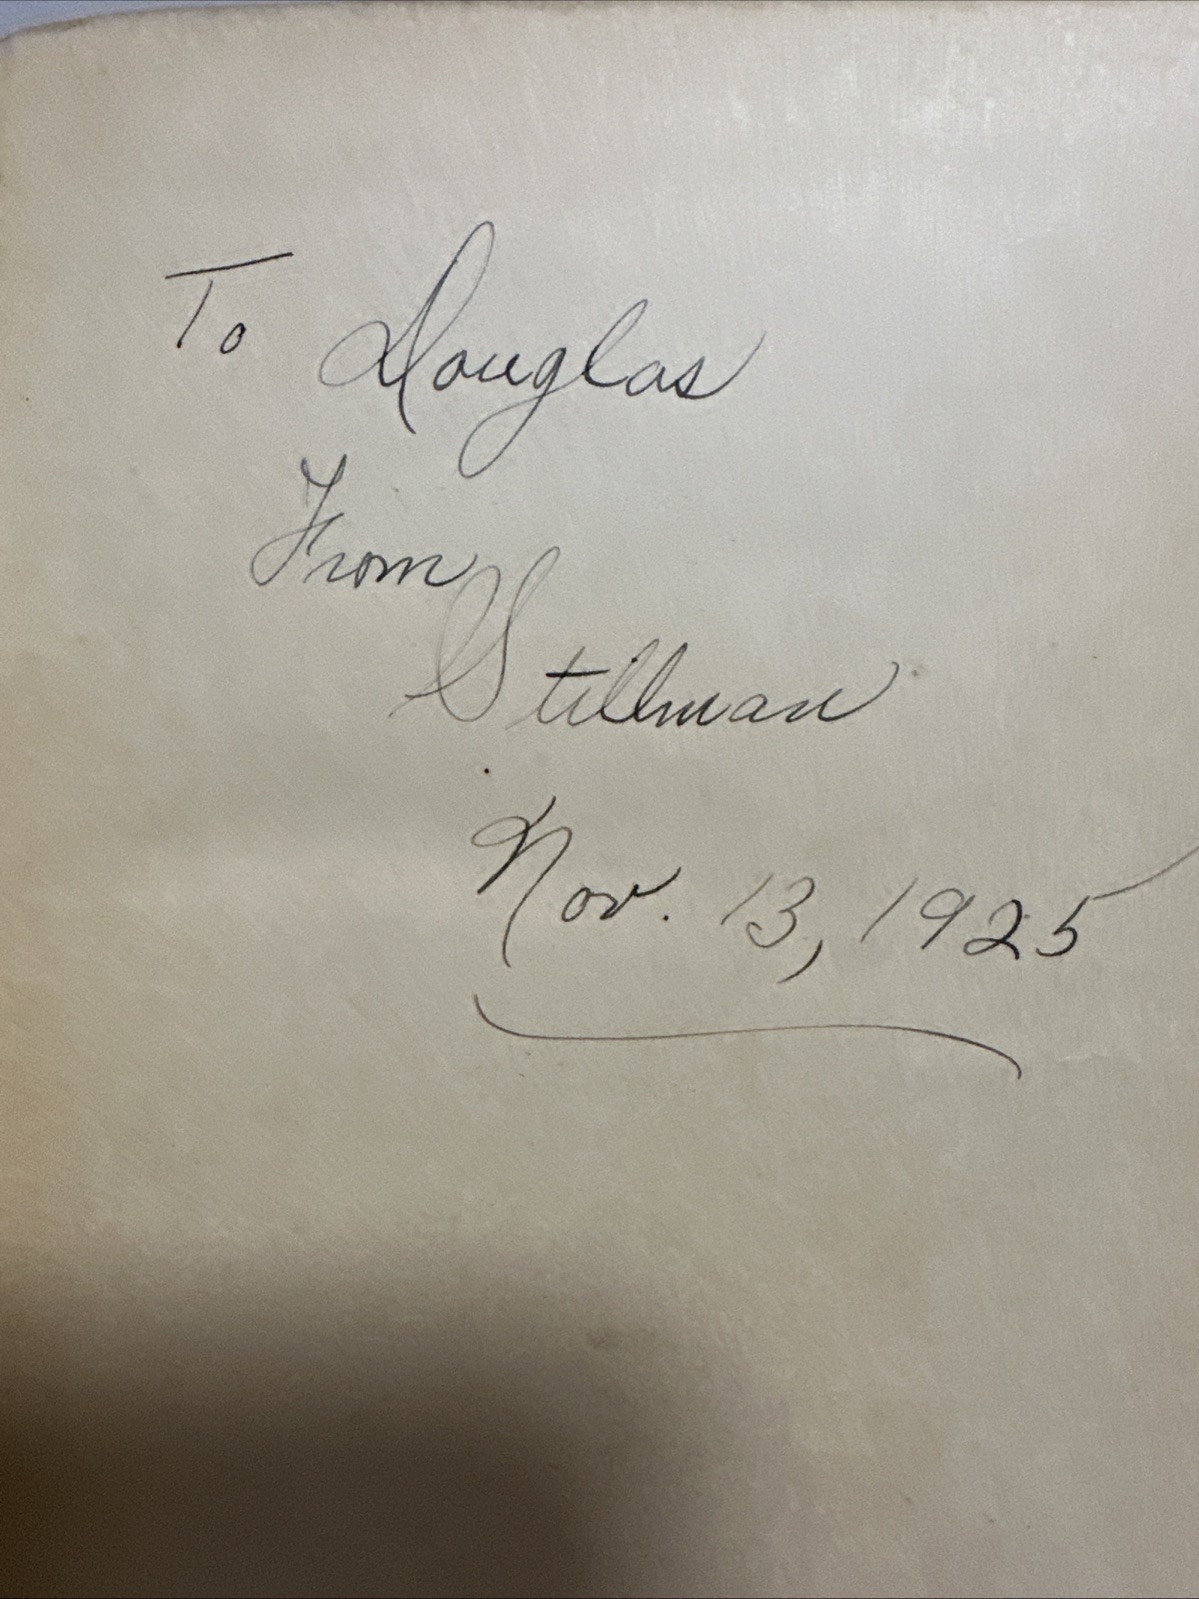 To Douglas
From
Stillman
Nov. 13, 1925